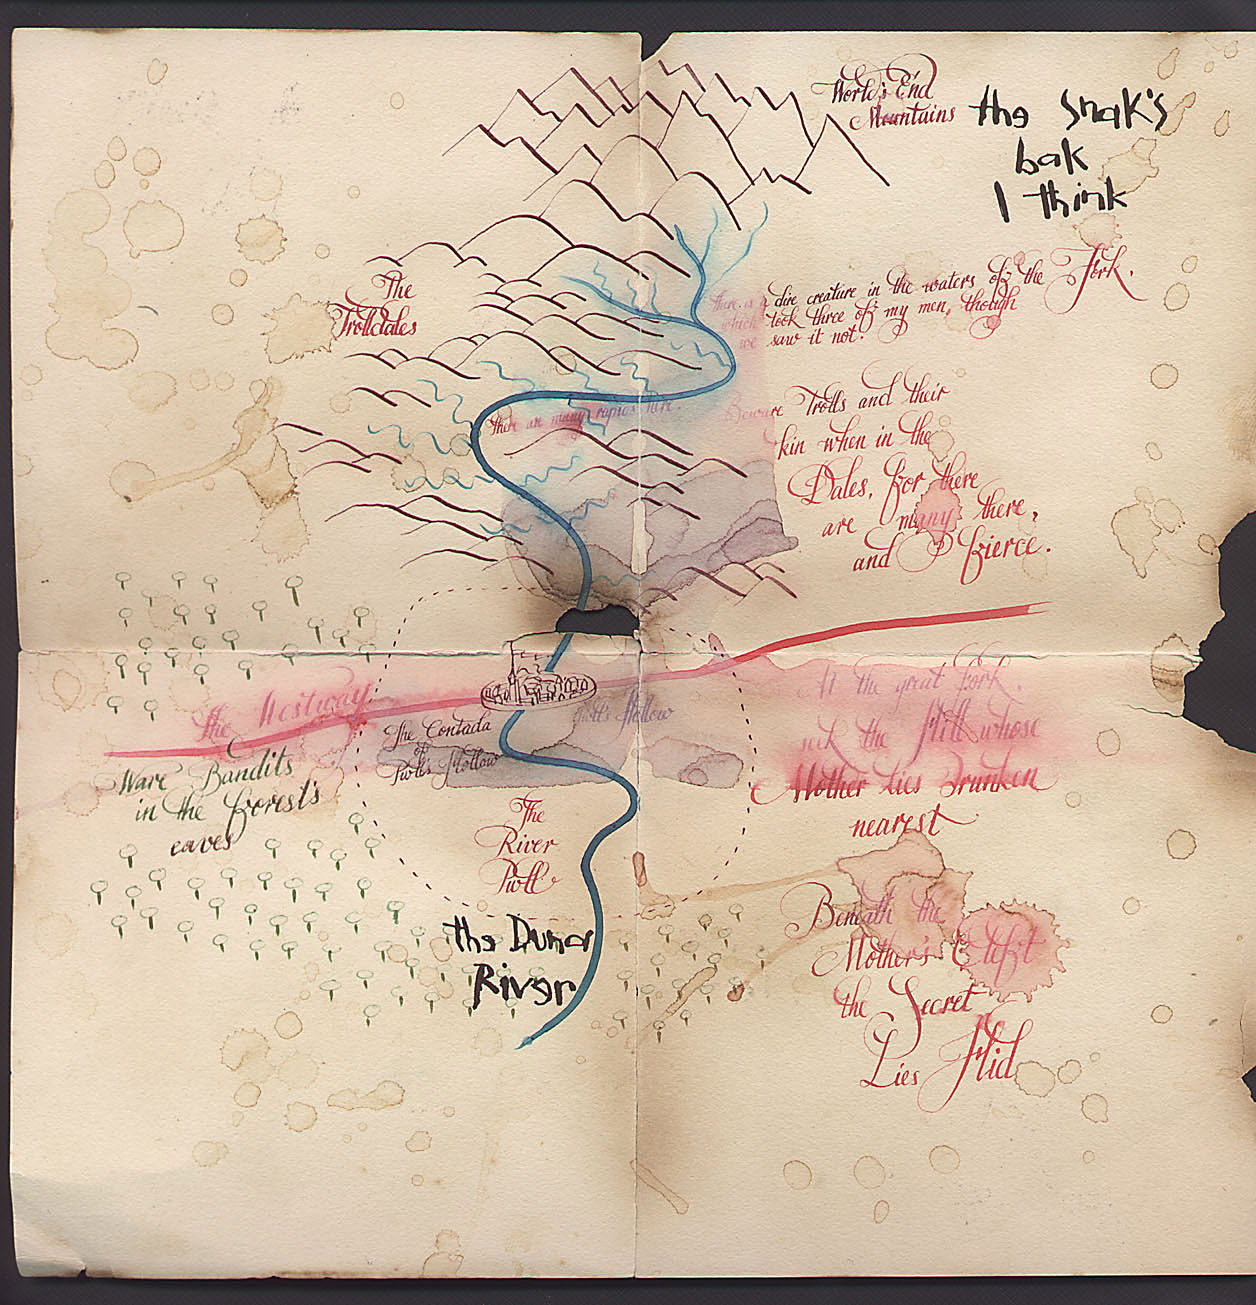 World's End
Mountains
the snak's
bak
I think
The
Trolldales
There is a dire creature in the waters of the Fork,
which took three of my men, though
we saw it not.
There are many rapids here.
Beware Trolls and their
kin when in the
Dales, for there
are many there,
and fierce.
The Westway
At the great Fork,
seek the Hill whose
Mother Lies Drunken
nearest
Hollow
The Contada
of
Pwll's Hollow
Ware Bandits
in the forest's
eaves
The
River
Pwll
the Dunar
River
Beneath the
Mother's Cleft
the Secret
Lies Hid